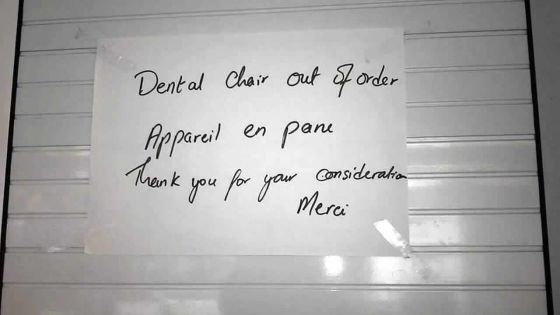 Dental Chair out of order
Appareil en pane
Thank you for your consideration
Merci